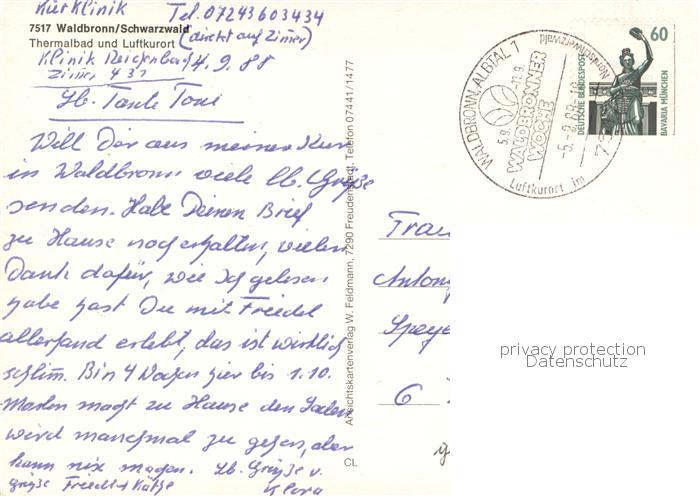 Kurklinik Tel. 07243603434
7517 Waldbronn/Schwarzwald
(direkt auf Zimmer)
Thermalbad und Luftkurort
Klinik Reichenbach 4.9.88
Zimmer 431
Lb. Tante Toni
Will Dir aus meiner Kur
in Waldbronn viele lb. Grüße
senden. Habe Deinen Brief
zu Hause noch erhalten, vielen
Dank dafür, wie ich gelesen
habe hast Du mit Friedel
allerhand erlebt, das ist wirklich
schlim. Bin 4 Wochen hier bis 1.10.
macht zu Hause den Laden
wird manchmal zu gehen, aber
kann nix machen. Lb. Grüße v.
Grüße Friedel + Klora
CL
Ansichtskartenverlag W. Feldmann, 7290 Freudenstadt, Telefon 07441/1477
WALDBRONN, ALBTAL 1
5.9. - 11.9.
WALDBRONNER
WOCHE
-5.-9.88-18
Luftkurort im
Nordschwarzwald
60
DEUTSCHE BUNDESPOST
BAVARIA MÜNCHEN
Frau
Anton
Speye
6
privacy protection
Datenschutz